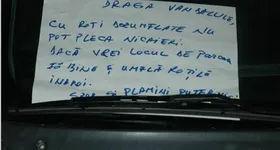 DRAGA VANDALULE,
CU ROȚI DEZUMFLATE NU
POT PLECA NICĂIERI.
DACĂ VREI LOCUL DE PARCARE
FĂ BINE ȘI UMFLĂ ROȚILE
ÎNAPOI.
SPOR ȘI PLĂMÎNI PUTERNICI